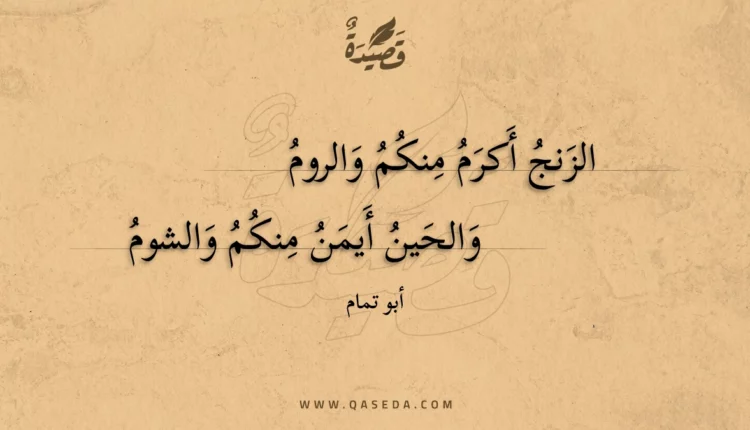 قَصِيدَةٌ
الزَنجُ أَكرَمُ مِنكُمُ وَالرومُ
وَالحَينُ أَيمَنُ مِنكُمُ وَالشومُ
أبو تمام
WWW.QASEDA.COM